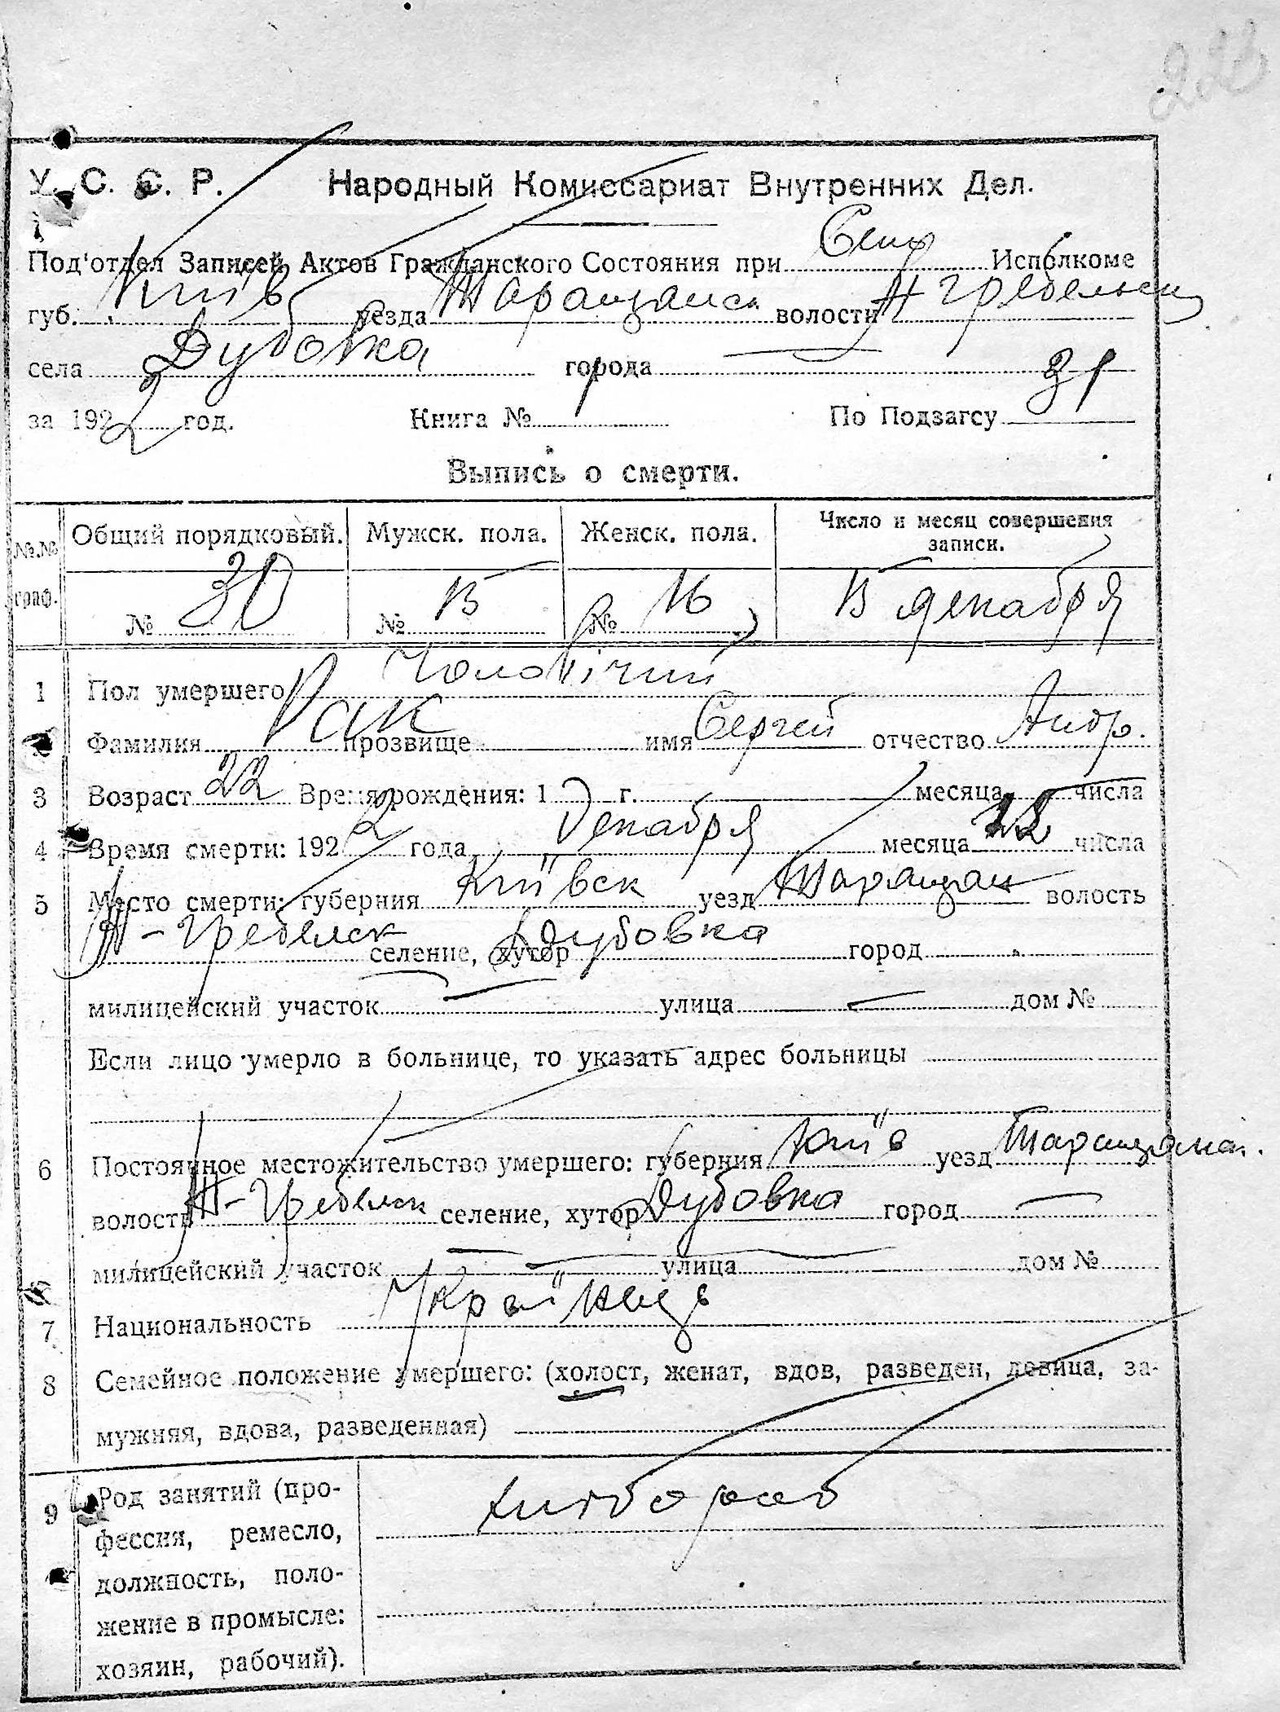 228
У. С. С. Р. Народный Комиссариат Внутренних Дел.
Под'отдел Записей Актов Гражданского Состояния при Испoлкоме
губ. Київ уезда Таращанск волости Ж Гребельск
села Дубовка города —
за 1922 год. Книга № 1 По Подзагсу 31
Выпись о смерти.
№.№ граф. Общий порядковый. Мужск. пола. Женск. пола. Число и месяц совершения записи.
№ 30 № 15 № 16 15 декабря
1 Пол умершего Чоловічий
2 Фамилия Рак прозвище имя Сергей отчество Андр.
3 Возраст 22 Время рождения: 1 г. месяца числа
4 Время смерти: 1922 года Декабря месяца числа
5 Место смерти: губерния Київск уезд Таращан волость
Ж-Гребельск селение, хутор Дубовка город
милицейский участок — улица — дом №
Если лицо умерло в больнице, то указать адрес больницы
6 Постоянное местожительство умершего: губерния Київ уезд Таращанск.
волость Ж-Гребельск селение, хутор Дубовка город —
милицейский участок — улица — дом №
7 Национальность Українець
8 Семейное положение умершего: (холост, женат, вдов, разведен, девица, за-
мужняя, вдова, разведенная)
9 Род занятий (про- хлібороб
фессия, ремесло,
должность, поло-
жение в промысле:
хозяин, рабочий).